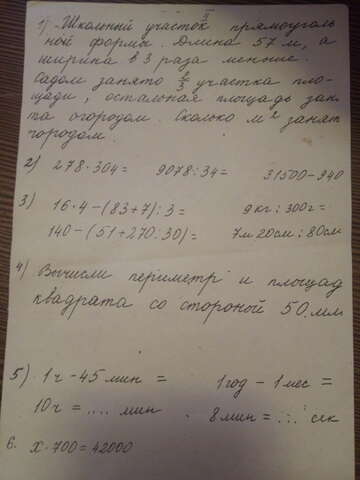 1) Школьный участок прямоуголь
ной формы. Длина 57 м, а
ширина в 3 раза меньше.
Садом занято 2/3 участка пло-
щади, остальная площадь заня
та огородом. Сколько м² занят
огородом.
2) 278·304= 9078:34= 31500-940
3) 16·4-(83+7):3= 9кг:300г=
140-(51+270:30)= 7м20см:80см
4) Вычисли периметр и площад
квадрата со стороной 50 мм
5) 1ч-45мин= 1год-1мес=
10ч=....мин 8мин=...сек
6. х·700=42000